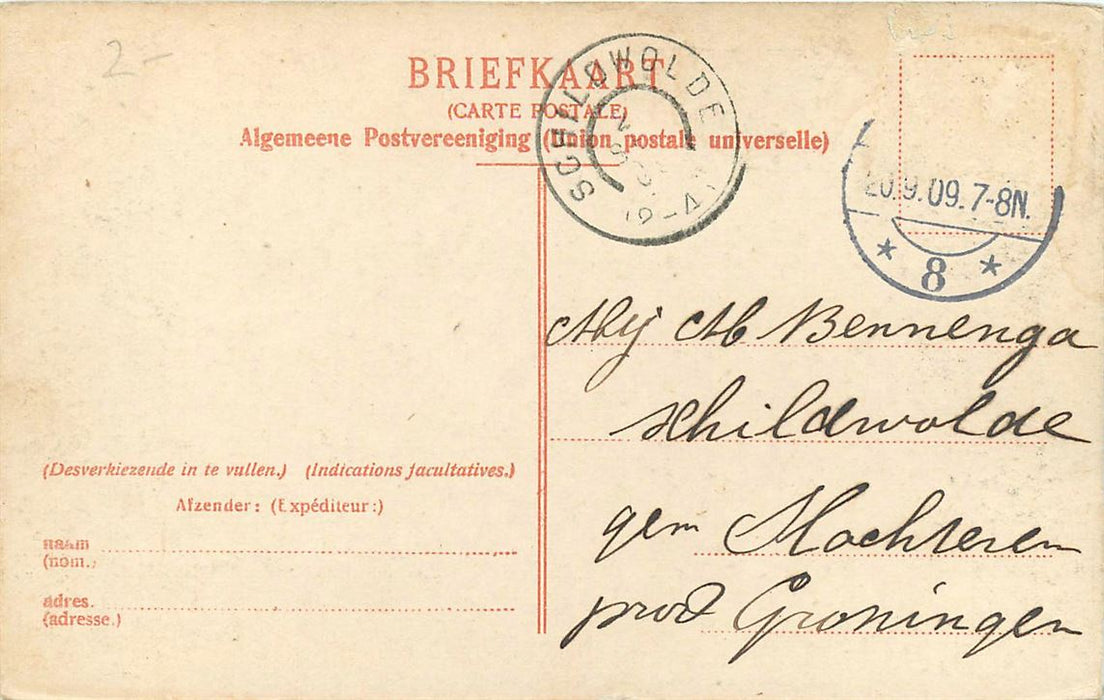 2-
BRIEFKAART
(CARTE POSTALE)
Algemeene Postvereeniging (Union postale universelle)
SCHILDWOLDE
20.9.09.7-8N.
* 8 *
Mej M Bennenga
Schildwolde
gem Slochteren
prov Groningen
(Desverkiezende in te vullen.) (Indications facultatives.)
Afzender: (Expéditeur:)
naam
(nom.)
adres.
(adresse.)